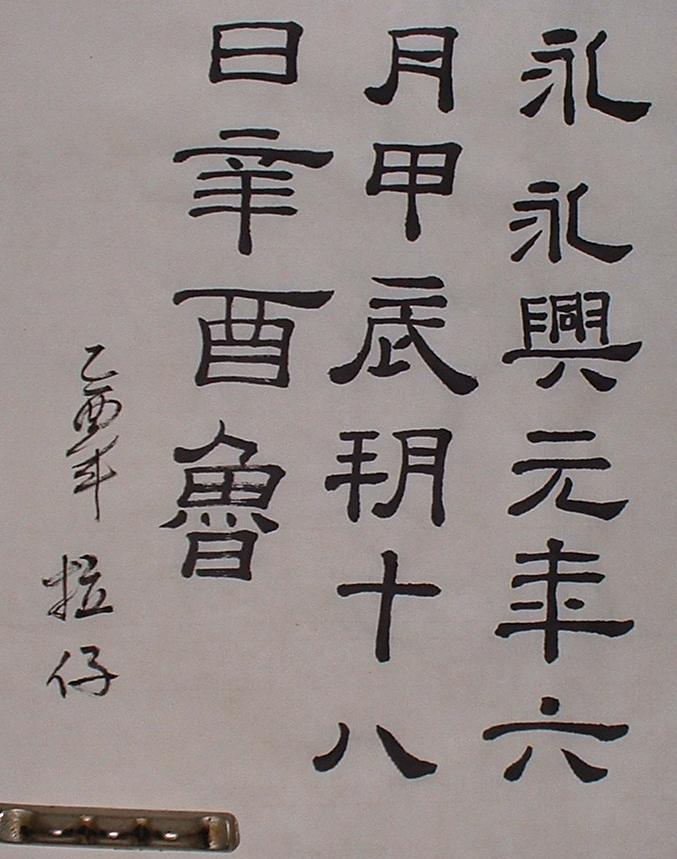 永永興元年六
月甲辰朔十八
日辛酉魯
乙酉年 拉仔